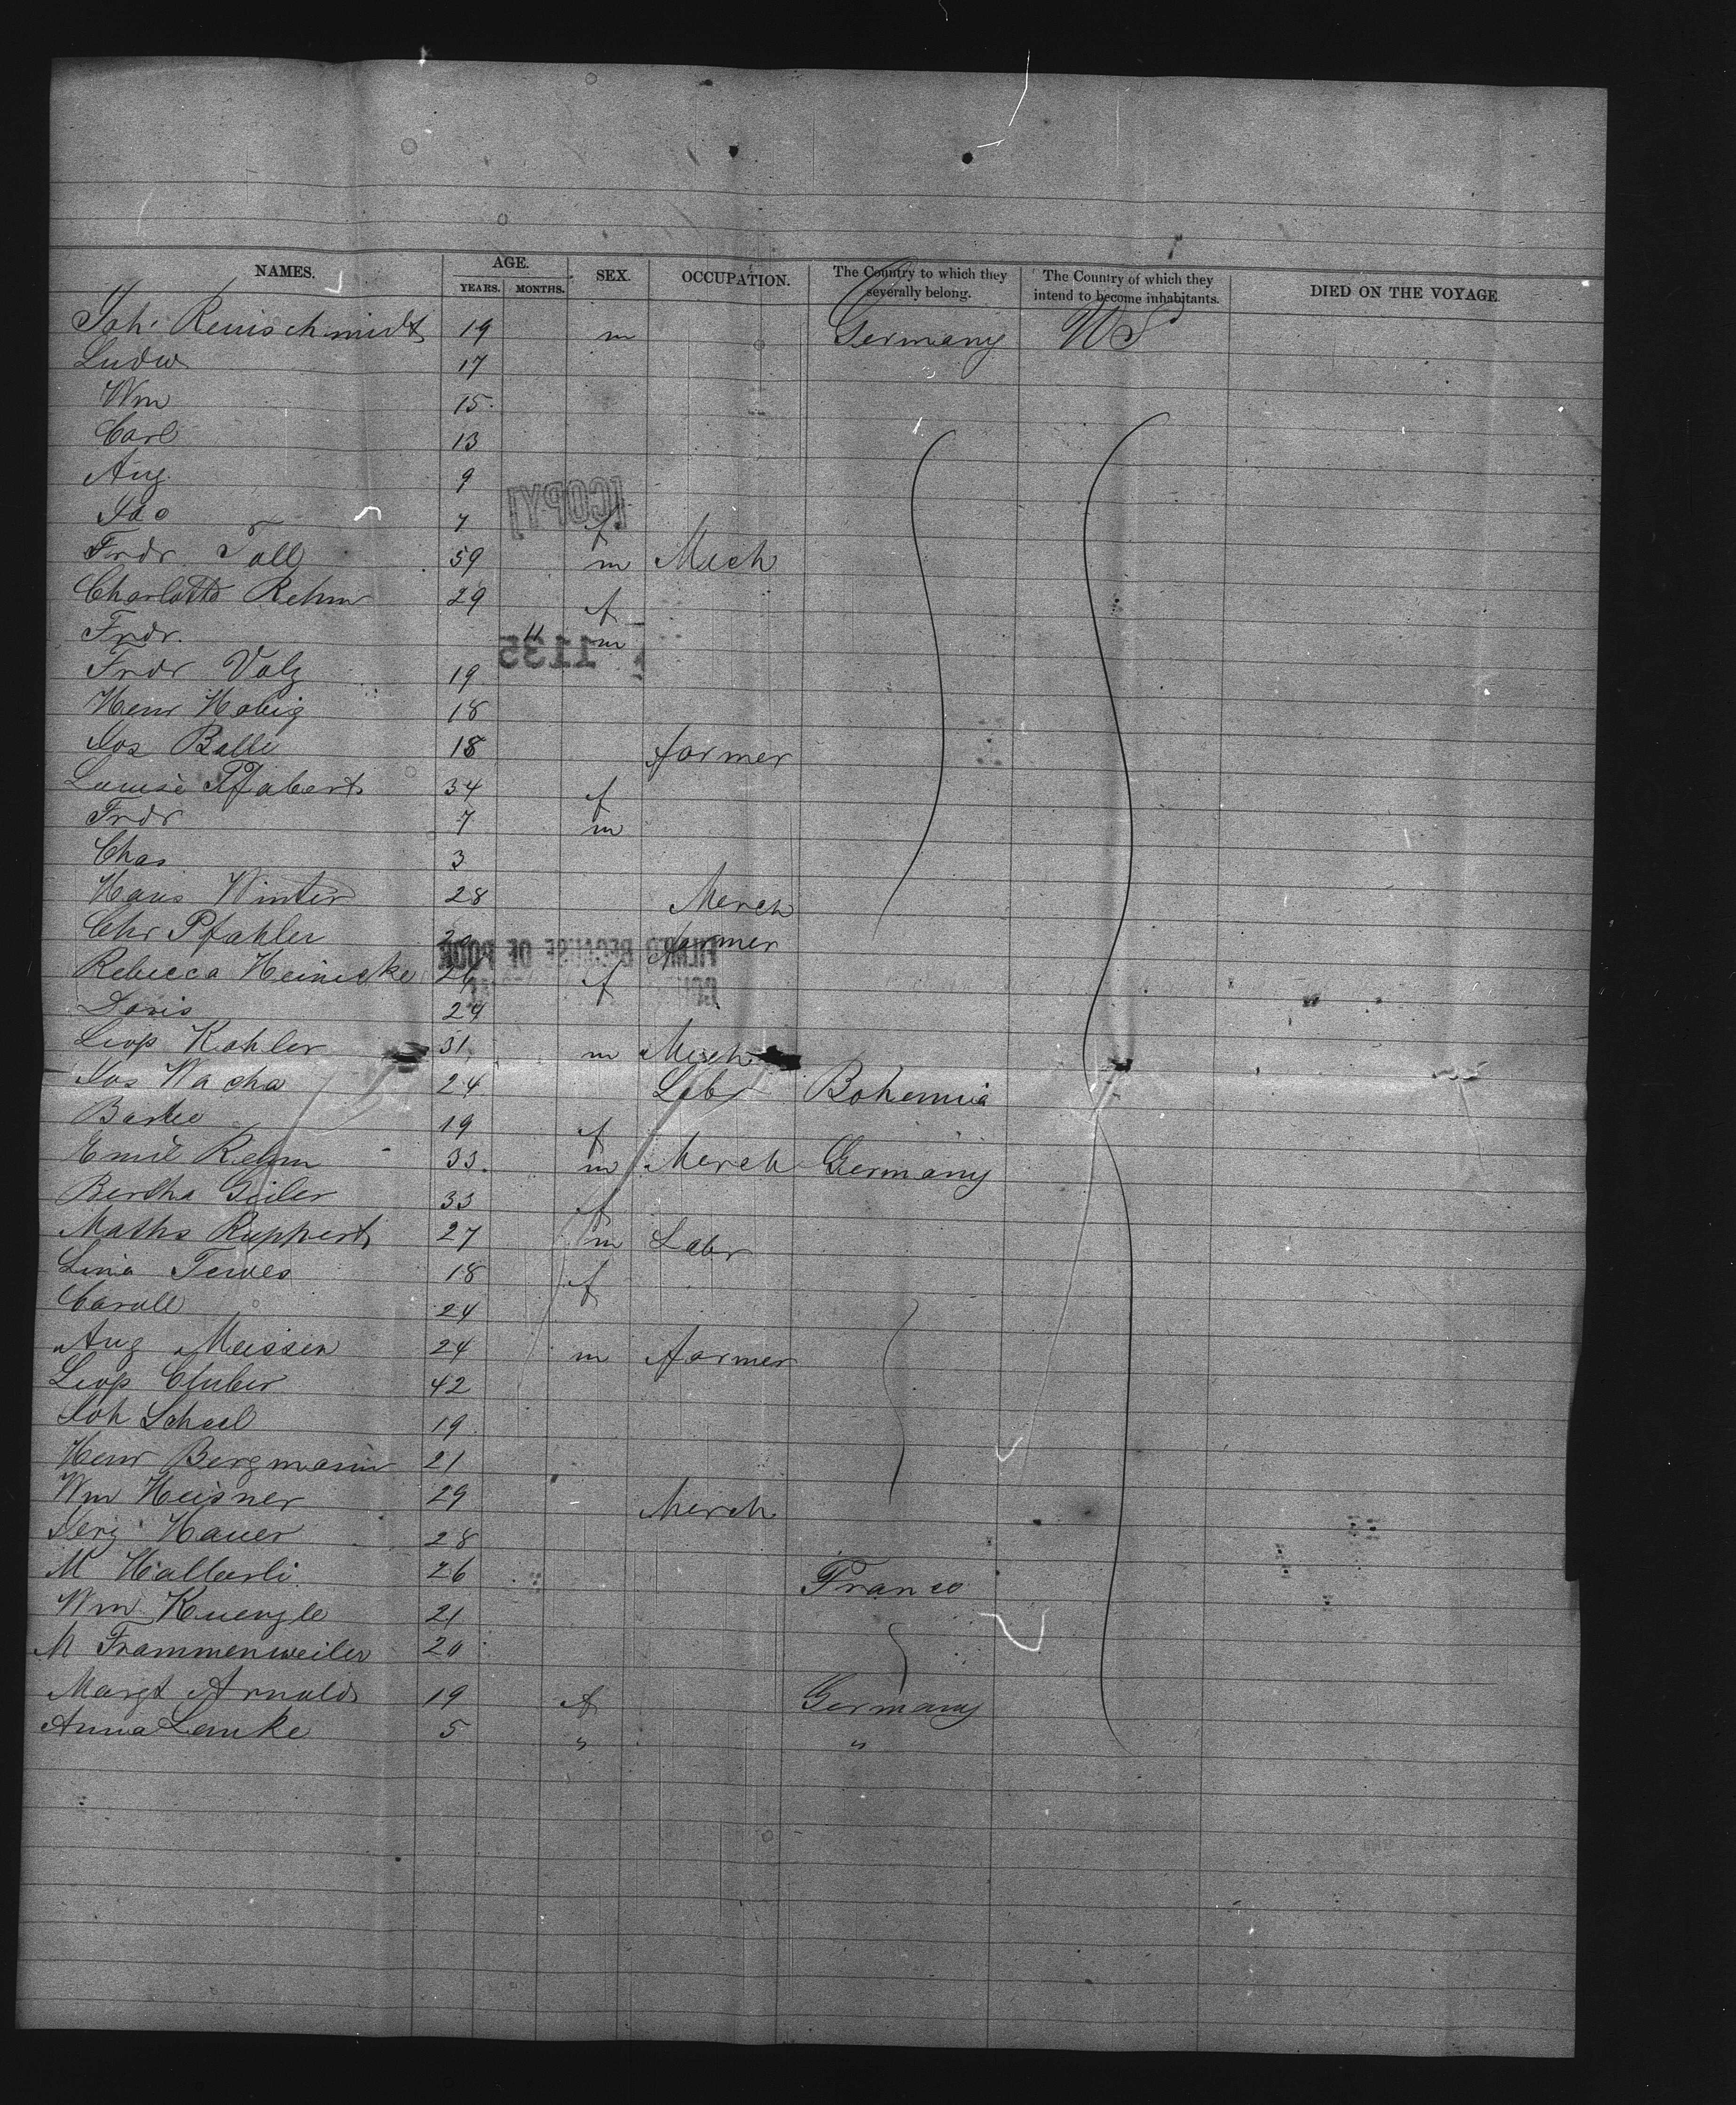 NAMES. AGE. SEX. OCCUPATION. The Country to which they severally belong. The Country of which they intend to become inhabitants. DIED ON THE VOYAGE
YEARS. MONTHS.
Joh. Renischmidt 19 m Germany US
Ludw 17
Wm 15
Carl 13
Aug. 9
Jac 7 f
[COPY]
Fridr Toll 59 m Mech
Charlotte Rehm 29 f
Fridr. 11 m
1135
Fridr Volz 19
Henr Hobig 18
Jos Balle 18 farmer
Louise Pfabert 34 f
Fridr 7 m
Chas 3
Hans Winter 28 Merch
Chr Pfahler 20 farmer
FILMED BECAUSE OF POOR
Rebecca Heinecke 26 f
Doris 24
Leop Kohler 31 m Mech
Jos Wacha 24 Labr Bohemia
19 f
Emil Rehm 33 m Merch Germany
Bertha Geiler 33 f
Maths Ruppert 27 m Labr
Lina Tewes 18 f
24
Aug Meissen 24 m farmer
Leop 42
Joh Schael 19
Henr Bergmann 21
Wm Heisner 29 Merch
Hauer 28
M 26 France
Wm Kuengle 21
M Frammenweiler 20
Margt Arnold 19 f Germany
Anna Lemke 5 " "